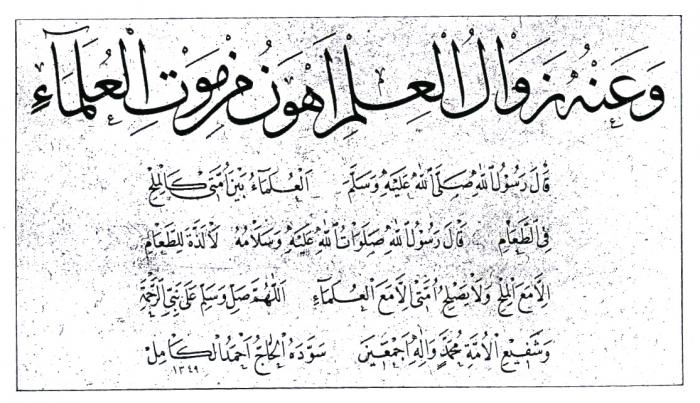 وَعَنْهُ زَوَالُ الْعِلْمِ اَهْوَنُ مِنْ مَوْتِ الْعُلَمَاءِ
قَالَ رَسُولُ اللهِ صَلَّى اللهُ عَلَيْهِ وَسَلَّمَ اَلْعُلَمَاءُ بَيْنَ اُمَّتِى كَالْمِلْحِ
فِى الطَّعَامِ قَالَ رَسُولُ اللهِ صَلَوَاتُ اللهِ عَلَيْهِ وَسَلَامُهُ لَا لَذَّةَ لِلطَّعَامِ
اِلَّا مَعَ الْمِلْحِ وَلَا يَصْلِحُ اُمَّتِى اِلَّا مَعَ الْعُلَمَاءِ اَللّٰهُمَّ صَلِّ وَسَلِّمْ عَلَى نَبِىِّ الرَّحْمَةِ
وَشَفِيعِ الْاُمَّةِ مُحَمَّدٍ وَاٰلِهِ اَجْمَعِينَ سَوَّدَهُ الْحَاجُّ اَحْمَدُ الْكَامِلُ
١٣٤٩